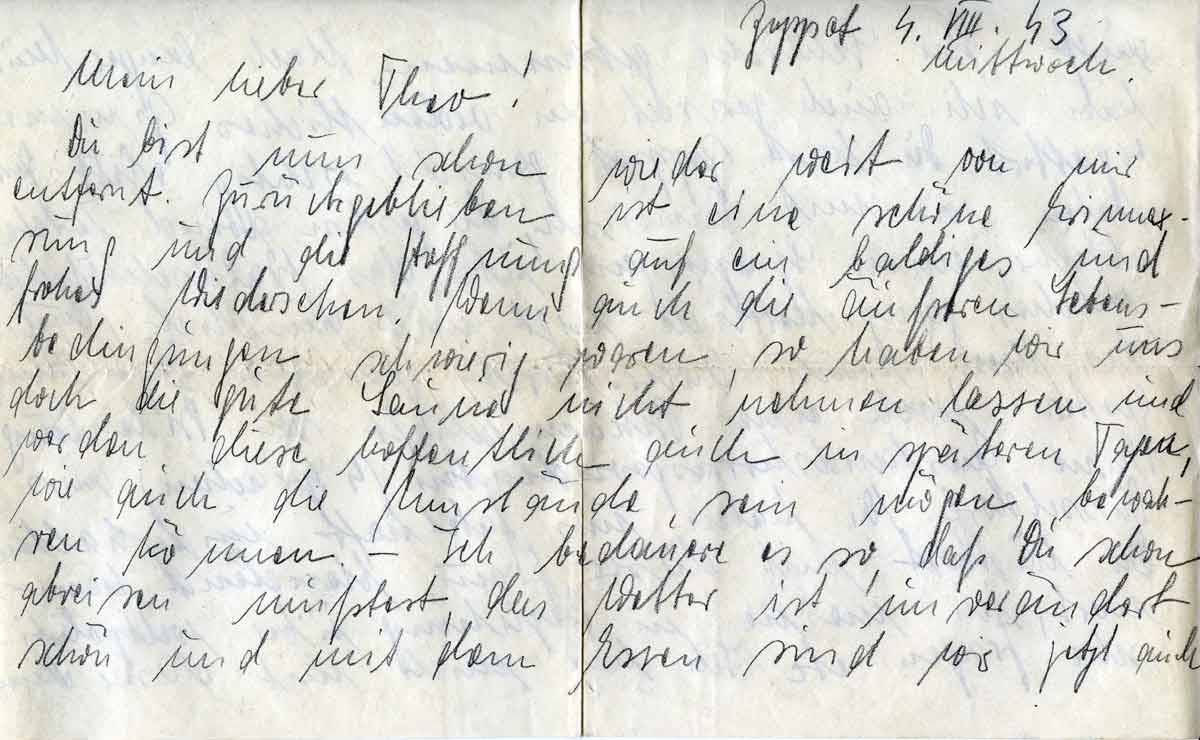 Zoppot 4. VIII. 43
Mittwoch.
Mein lieber Theo!
Du bist nun schon wieder weit von mir
entfernt. Zurückgeblieben ist eine schöne Erinner-
ung und die Hoffnung auf ein baldiges und
frohes Wiedersehen. Wenn auch die äußeren Lebens-
bedingungen schwierig waren, so haben wir uns
doch die gute Laune nicht nehmen lassen und
werden diese hoffentlich auch in späteren Tagen,
wie auch die Umstände sein mögen, bewah-
ren können. – Ich bedauere es so, daß Du schon
abreisen mußtest, das Wetter ist unverändert
schön und mit dem Essen sind wir jetzt auch